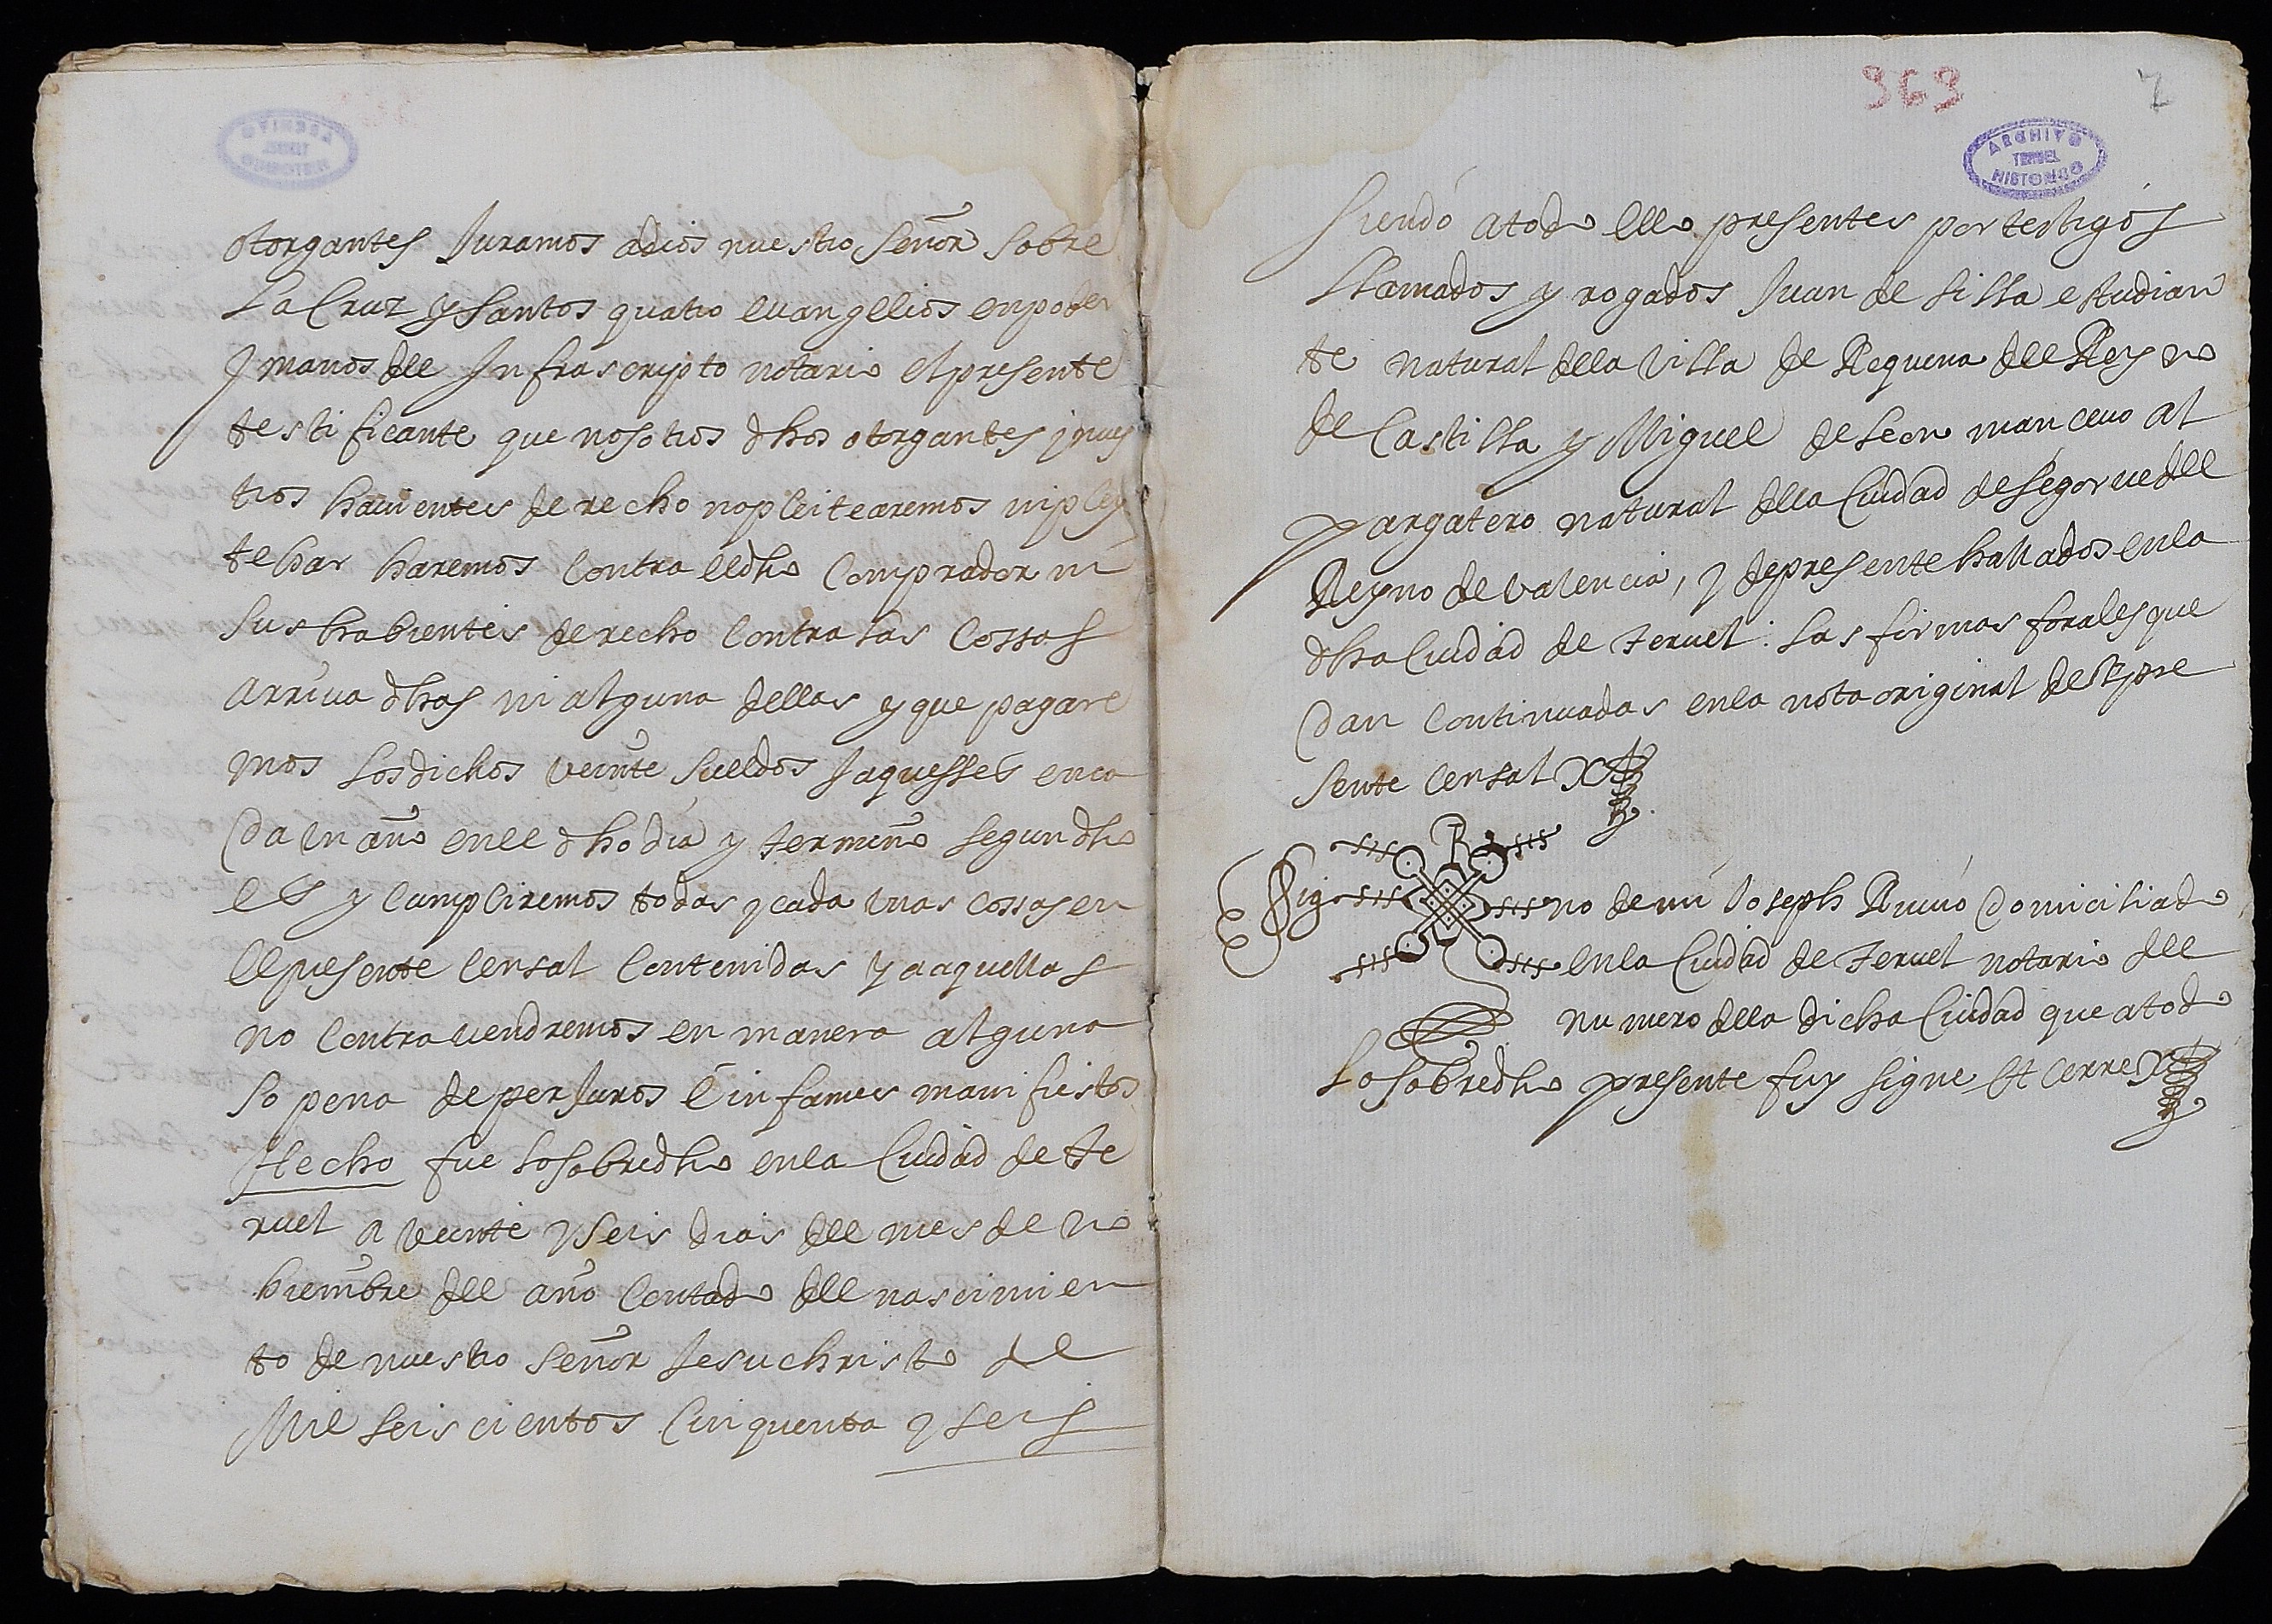 otorgantes Juramos a dios nuestro Señor sobre
la Cruz y Santos quatro evangelios en poder
y manos del Infrascripto notario el presente
testificante que nosotros dhos otorgantes y nues
tros havientes derecho no pleitearemos ni pley
tehar haremos contra el dho Comprador ni
sus habientes derecho contra las Cossas
arriva dhas ni alguna dellas y que pagare
mos los dichos veinte sueldos Jaquesses en ca
da un año en el dho dia y termino segun dho
es y cumpliremos todas y cada unas cossas en
el presente censal contenidas y a aquellas
no contravendremos en manera alguna
so pena de perJuros E infames manifiestos
Hecho fue lo sobredho en la Ciudad de Te
ruel a veinte y seis dias del mes de no
biembre del año contado del nascimien
to de nuestro Señor Jesuchristo de
Mil seiscientos cinquenta y seis
369
7
ARCHIVO
TERUEL
HISTORICO
siendo a todo ello presentes por testigos
llamados y rogados Juan de silla estudian
te natural de la Villa de Requena del Reyno
de Castilla y Miguel de leon mancevo al
pargatero natural de la Ciudad de segorve del
Reyno de valencia, y de presente hallados en la
dha Ciudad de Teruel. las firmas forales que
dan continuadas en la nota original del pre
sente censal
Sig no de mi Joseph domiciliado
en la Ciudad de Teruel notario del
numero de la dicha Ciudad que a todo
lo sobredho presente fuy signe Et cerre